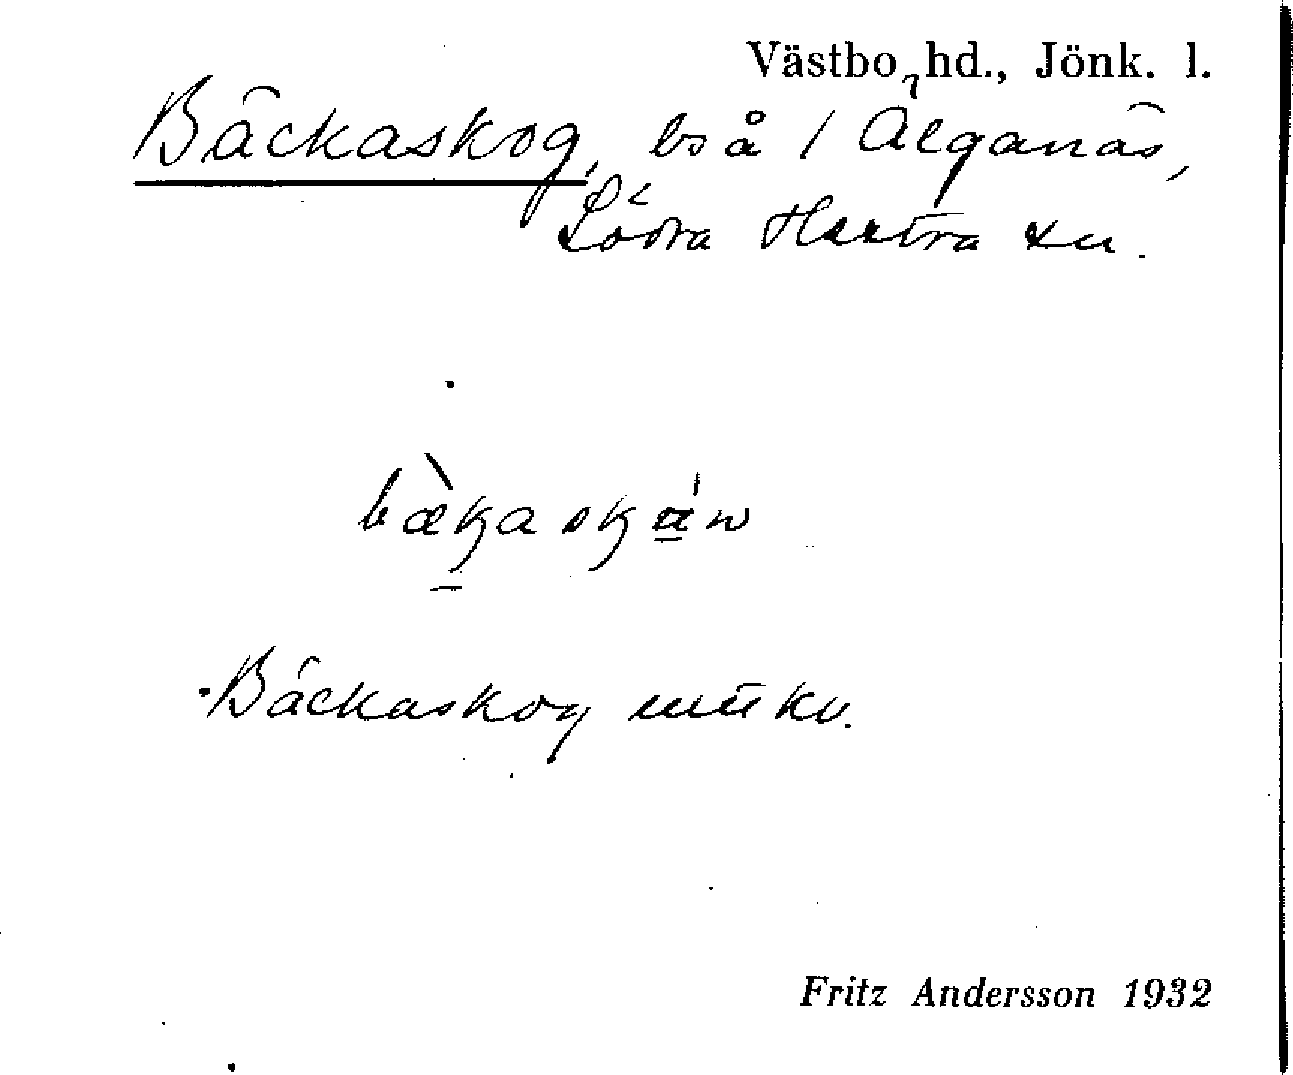 Västbo hd., Jönk. l.
Bäckaskog, bs å / Älganäs,
Södra Hestra sn.
bækaskáw
Bäckaskog mtkv.
Fritz Andersson 1932